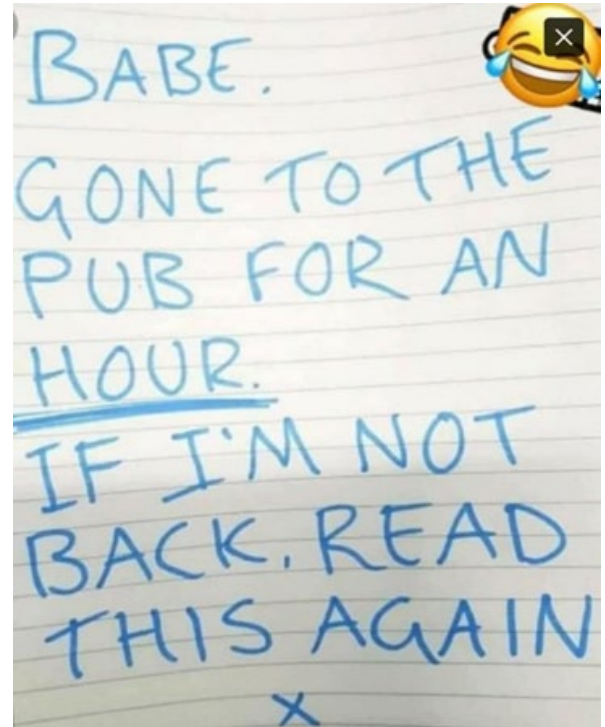 BABE.
GONE TO THE
PUB FOR AN
HOUR.
IF I'M NOT
BACK, READ
THIS AGAIN
x